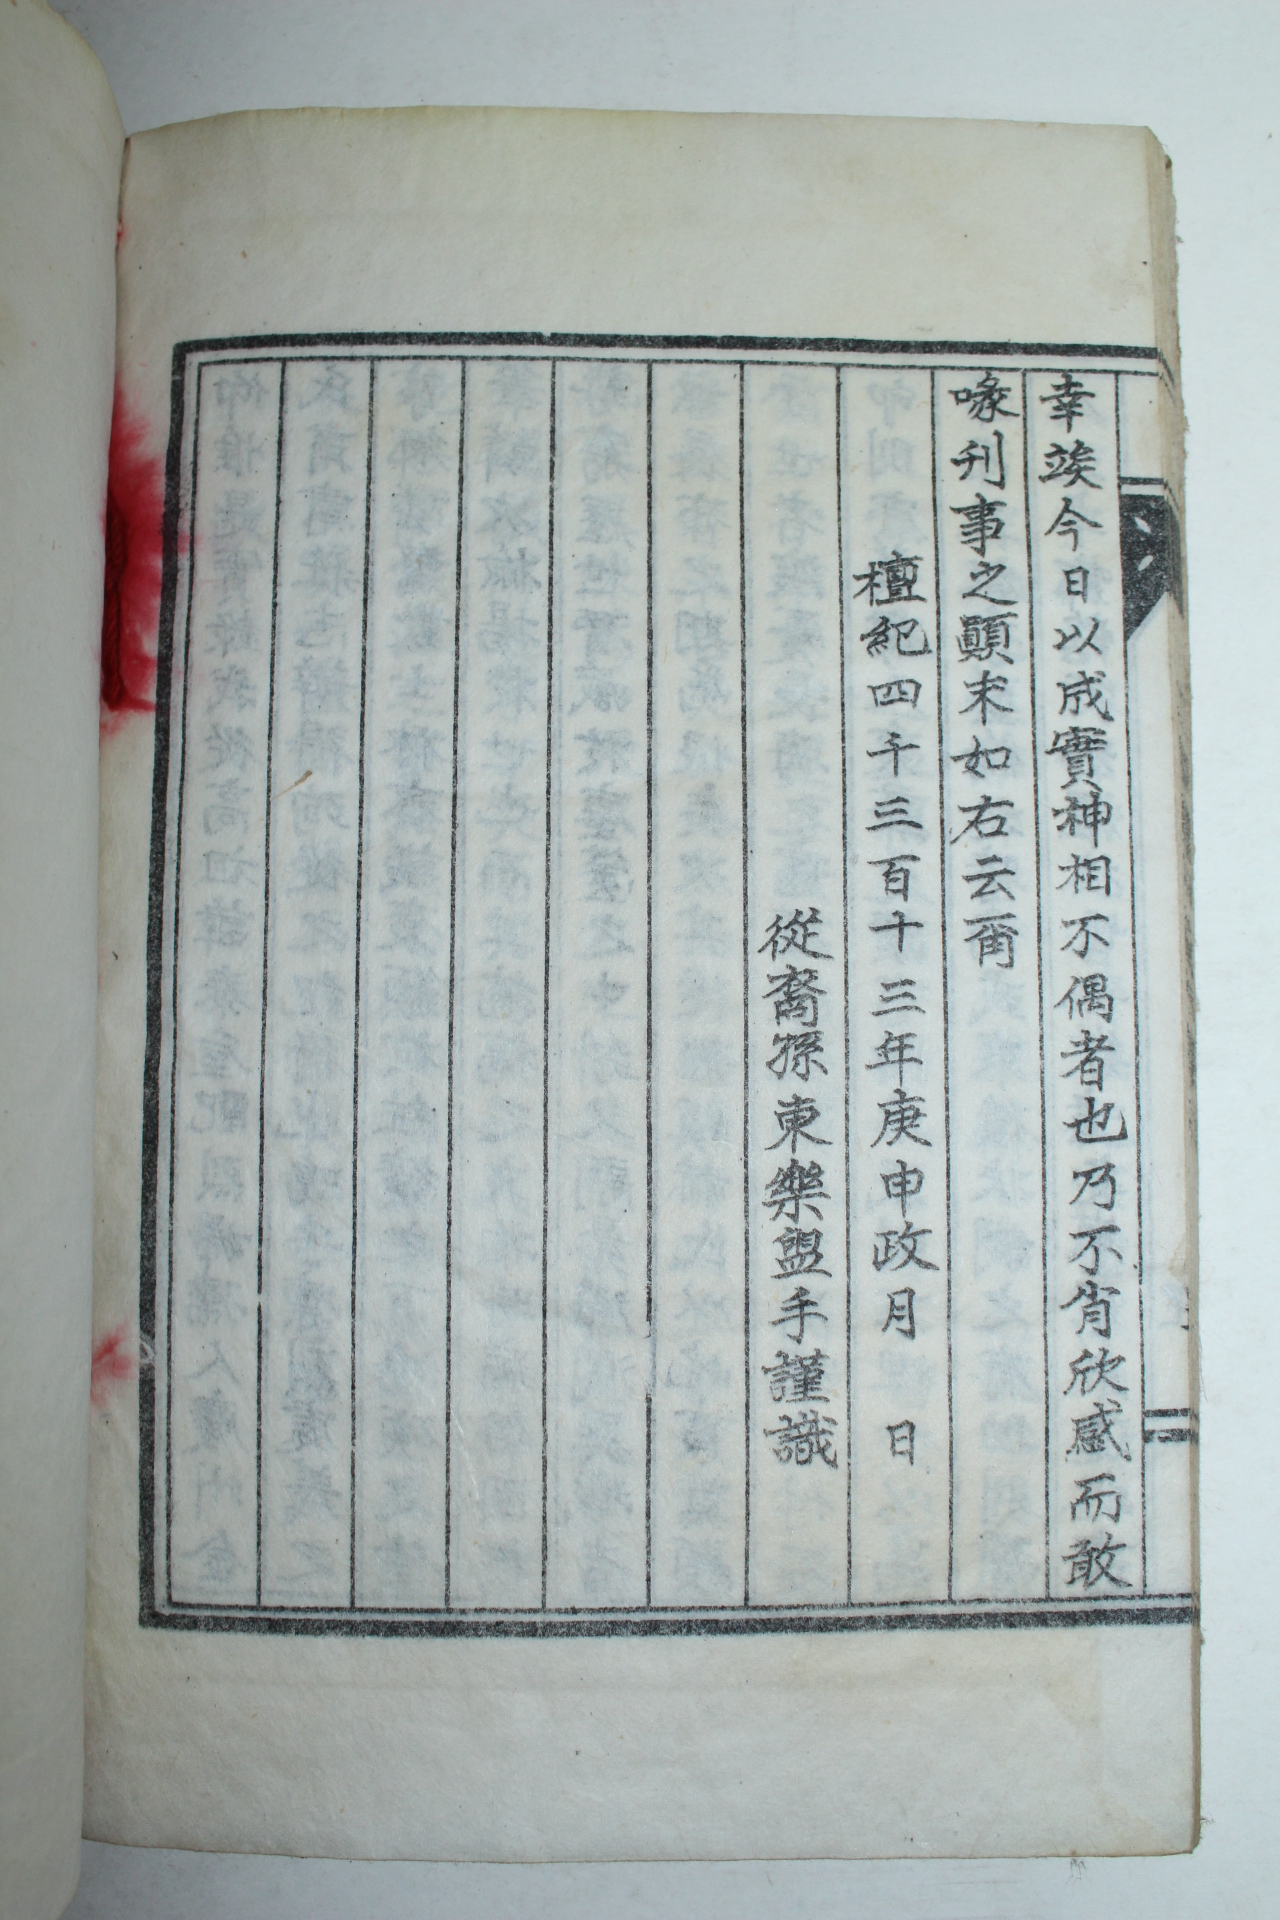 幸竢今日以成實神相不偶者也乃不肯欣感而敢
喙刋事之顚末如右云爾
檀紀四千三百十三年庚申政月 日
從裔孫東樂盥手謹識